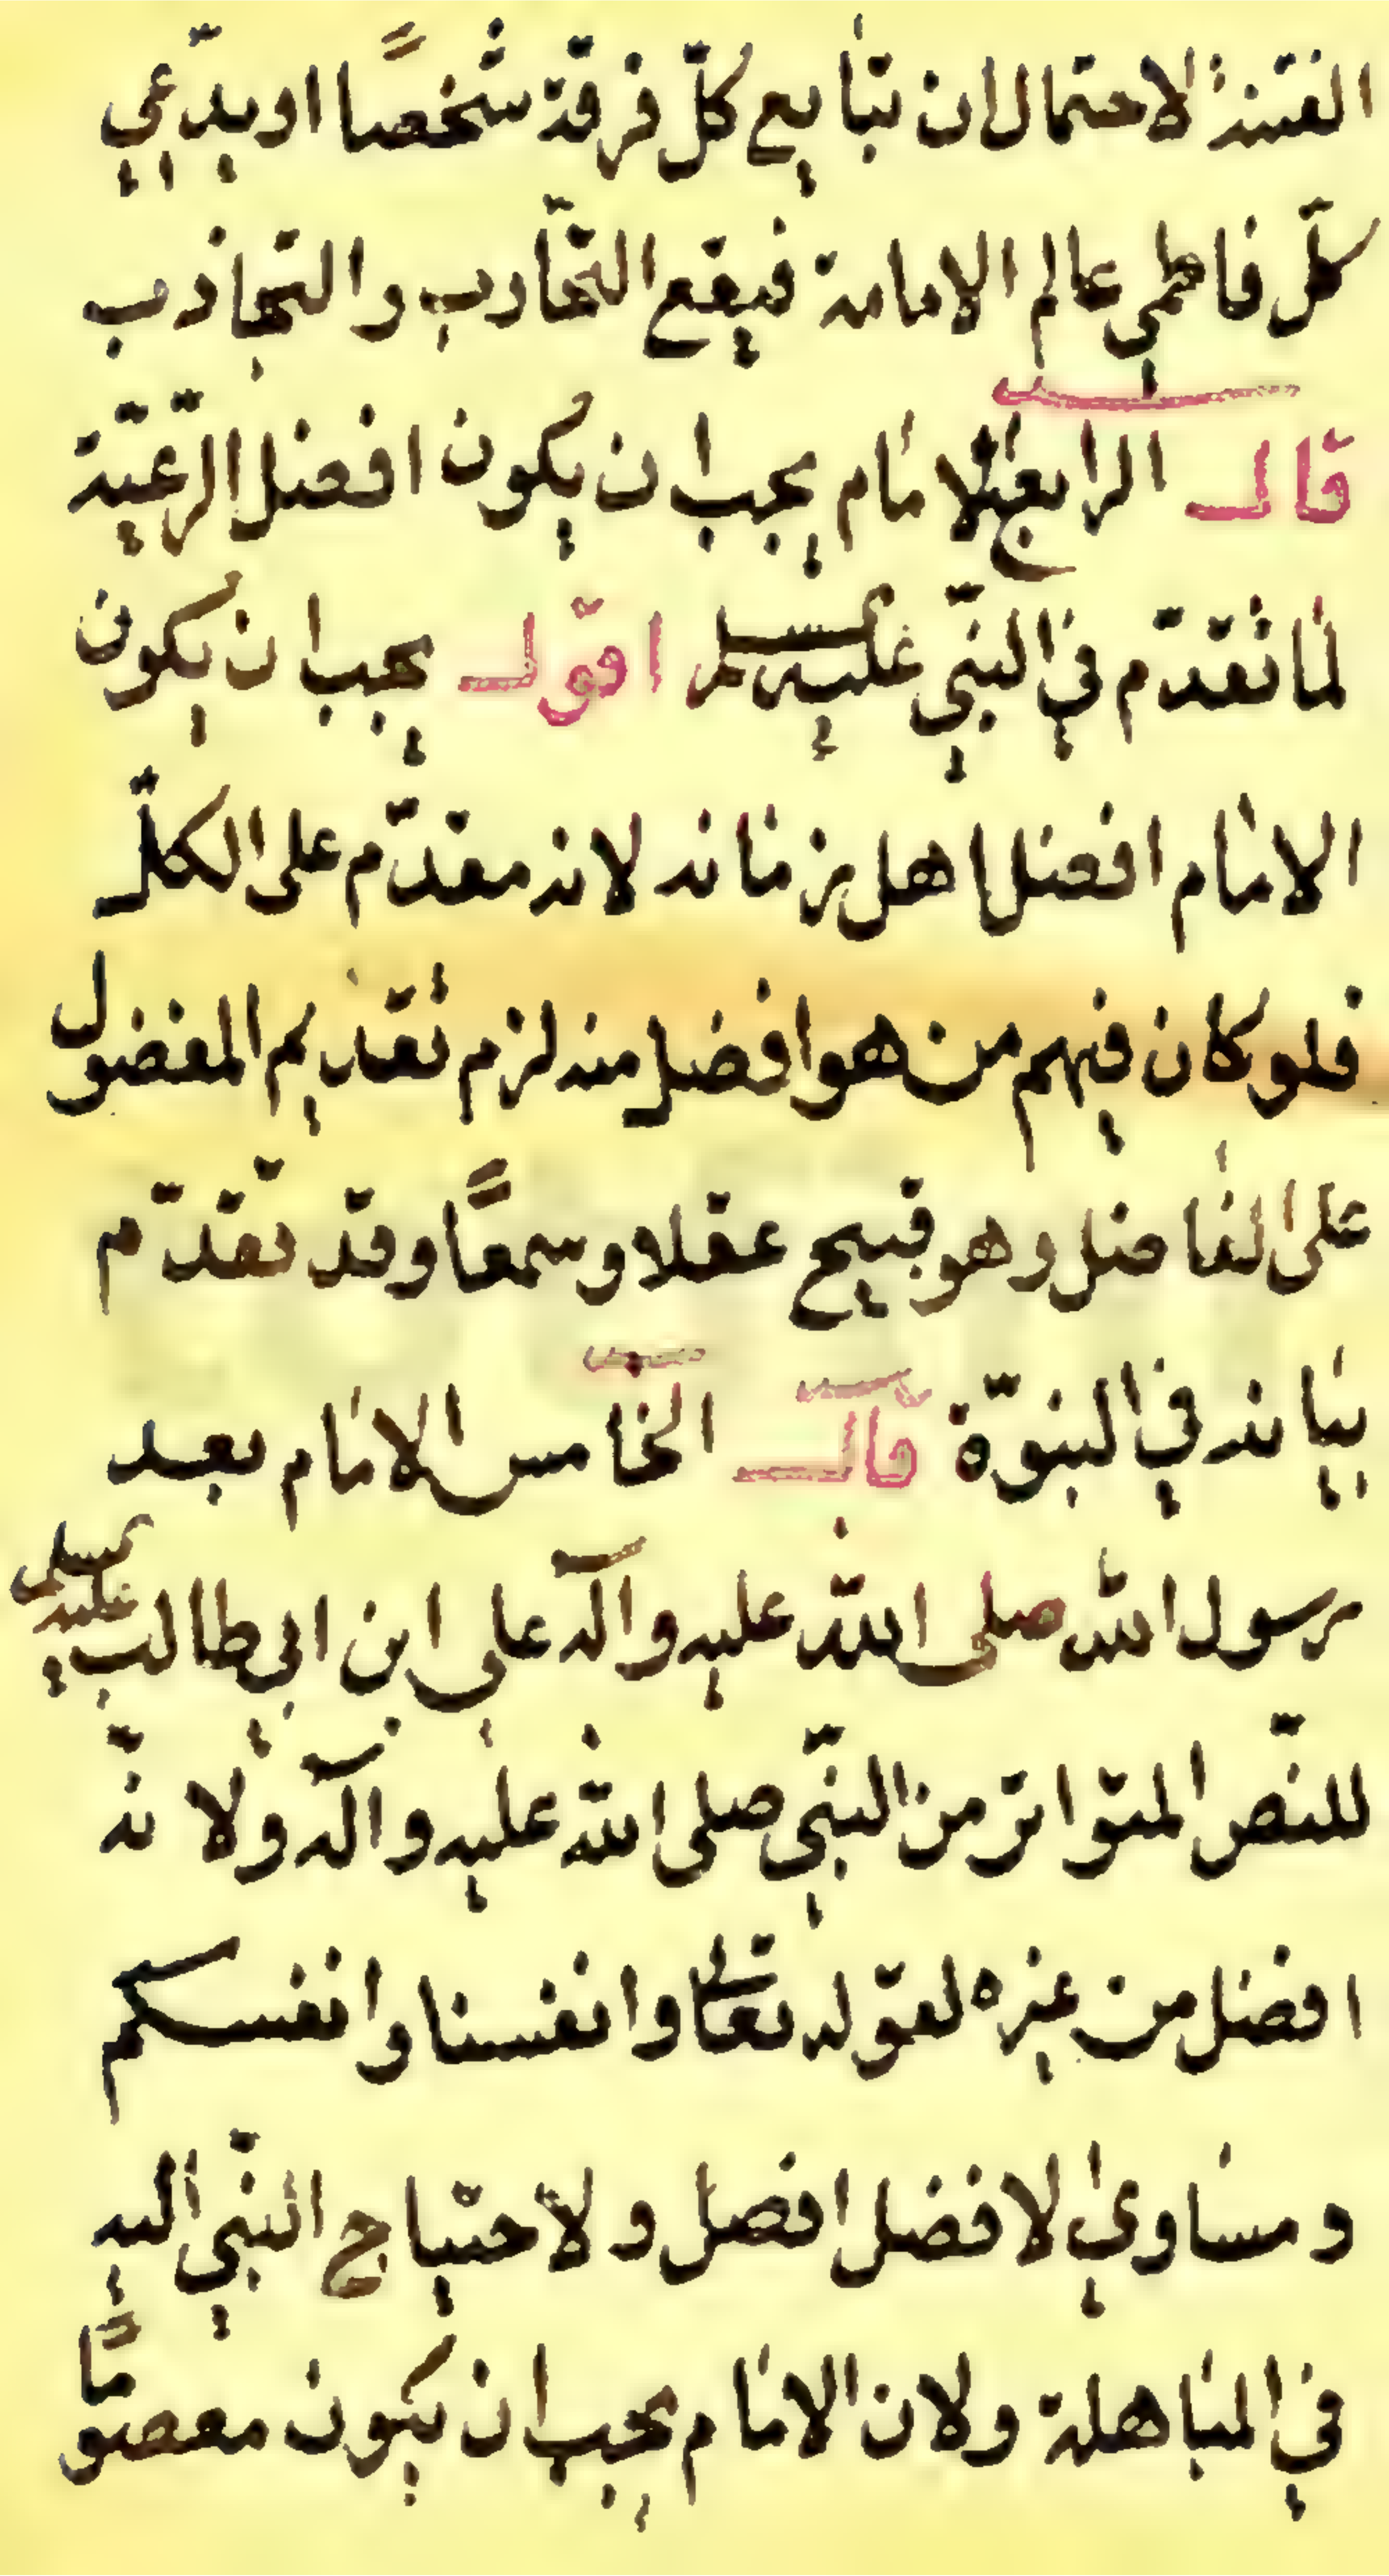 الفتنة لاحتمال ان تبايع كلّ فرقة شخصًا او يدّعي
كلّ فاطمي عالم الامامة فيقع التحارب والتجاذب
قال الرابع الامام يجب ان يكون افضل الرّعيّة
لما تقدّم في النبّي عليه السلم اقول يجب ان يكون
الامام افضل اهل زمانه لانه مقدّم على الكلّ
فلو كان فيهم من هو افضل منه لزم تقديم المفضول
على الفاضل وهو قبيح عقلا وسمعًا وقد تقدّم
بيانه في النبوّة قال الخامس الامام بعد
رسول الله صلى الله عليه وآله علي ابن ابي طالب عليه السلم
للنّص المتواتر من النبّي صلى الله عليه وآله ولانّه
افضل من غيره لقوله تعالى وانفسنا وانفسكم
ومساوي الافضل افضل ولاحتياج النبّي اليه
في المباهلة ولان الامام يجب ان يكون معصومًا